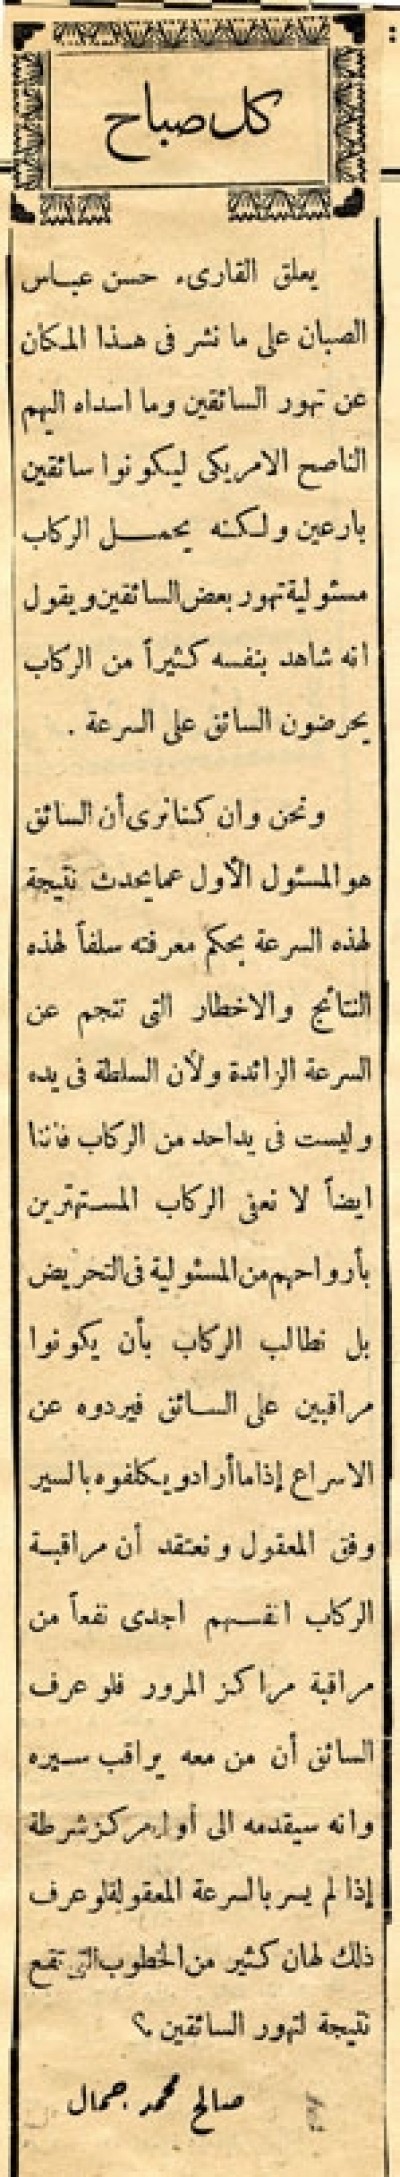 كل صباح
يعلق القارىء حسن عباس
الصبان على ما نشر فى هذا المكان
عن تهور السائقين وما اسداه اليهم
الناصح الامريكى ليكونوا سائقين
بارعين ولكنه يحمل الركاب
مسئولية تهور بعض السائقين ويقول
انه شاهد بنفسه كثيراً من الركاب
يحرضون السائق على السرعة .
ونحن وان كنا نرى أن السائق
هو المسئول الأول عما يحدث نتيجة
لهذه السرعة بحكم معرفته سلفاً لهذه
النتائج والاخطار التى تنجم عن
السرعة الزائدة ولأن السلطة فى يده
وليست فى يد احد من الركاب فاننا
ايضاً لا نعنى الركاب المستهترين
بأرواحهم من المسئولية فى التحريض
بل نطالب الركاب بأن يكونوا
مراقبين على السائق فيردوه عن
الاسراع إذا ما أراد ويكلفوه بالسير
وفق المعقول ونعتقد أن مراقبة
الركاب انفسهم اجدى نفعاً من
مراقبة مراكز المرور فلو عرف
السائق أن من معه يراقب سيره
وانه سيقدمه الى أول مركز شرطة
إذا لم يسر بالسرعة المعقولة لو عرف
ذلك لهان كثير من الخطوب التى تقع
نتيجة لتهور السائقين ؟
صالح محمد جمال